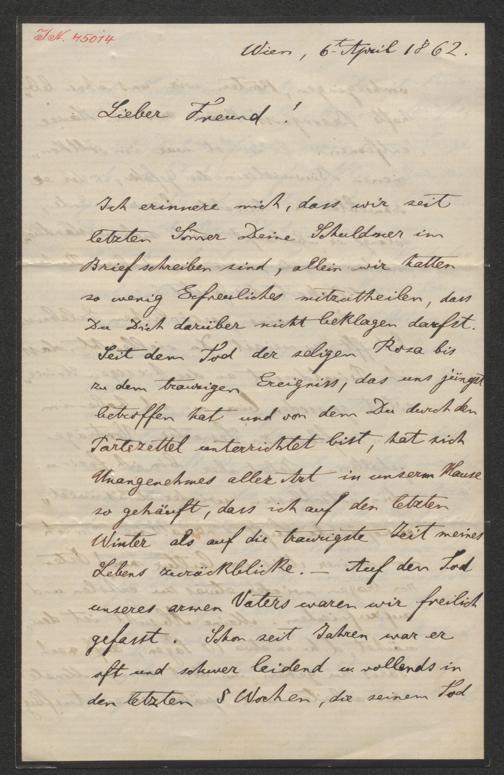 I. N. 45014
Wien, 6t April 1862.
Lieber Freund!
Ich erinnere mich, dass wir seit
letzten Som̅er Deine Schuldner im
Briefschreiben sind, allein wir hatten
so wenig Erfreuliches mitzutheilen, dass
Du Dich darüber nicht beklagen darfst.
Seit dem Tod der seligen Rosa bis
zu dem traurigen Ereigniss, das uns jüngst
betroffen hat und von dem Du durch den
Partezettel unterrichtet bist, hat sich
Unangenehmes aller Art in unserm Hause
so gehäuft, dass ich auf den letzten
Winter als auf die traurigste Zeit meines
Lebens zurückblicke. — Auf den Tod
unseres armen Vaters waren wir freilich
gefasst. Schon seit Jahren war er
oft und schwer leidend u. vollends in
den letzten 8 Wochen, die seinem Tod